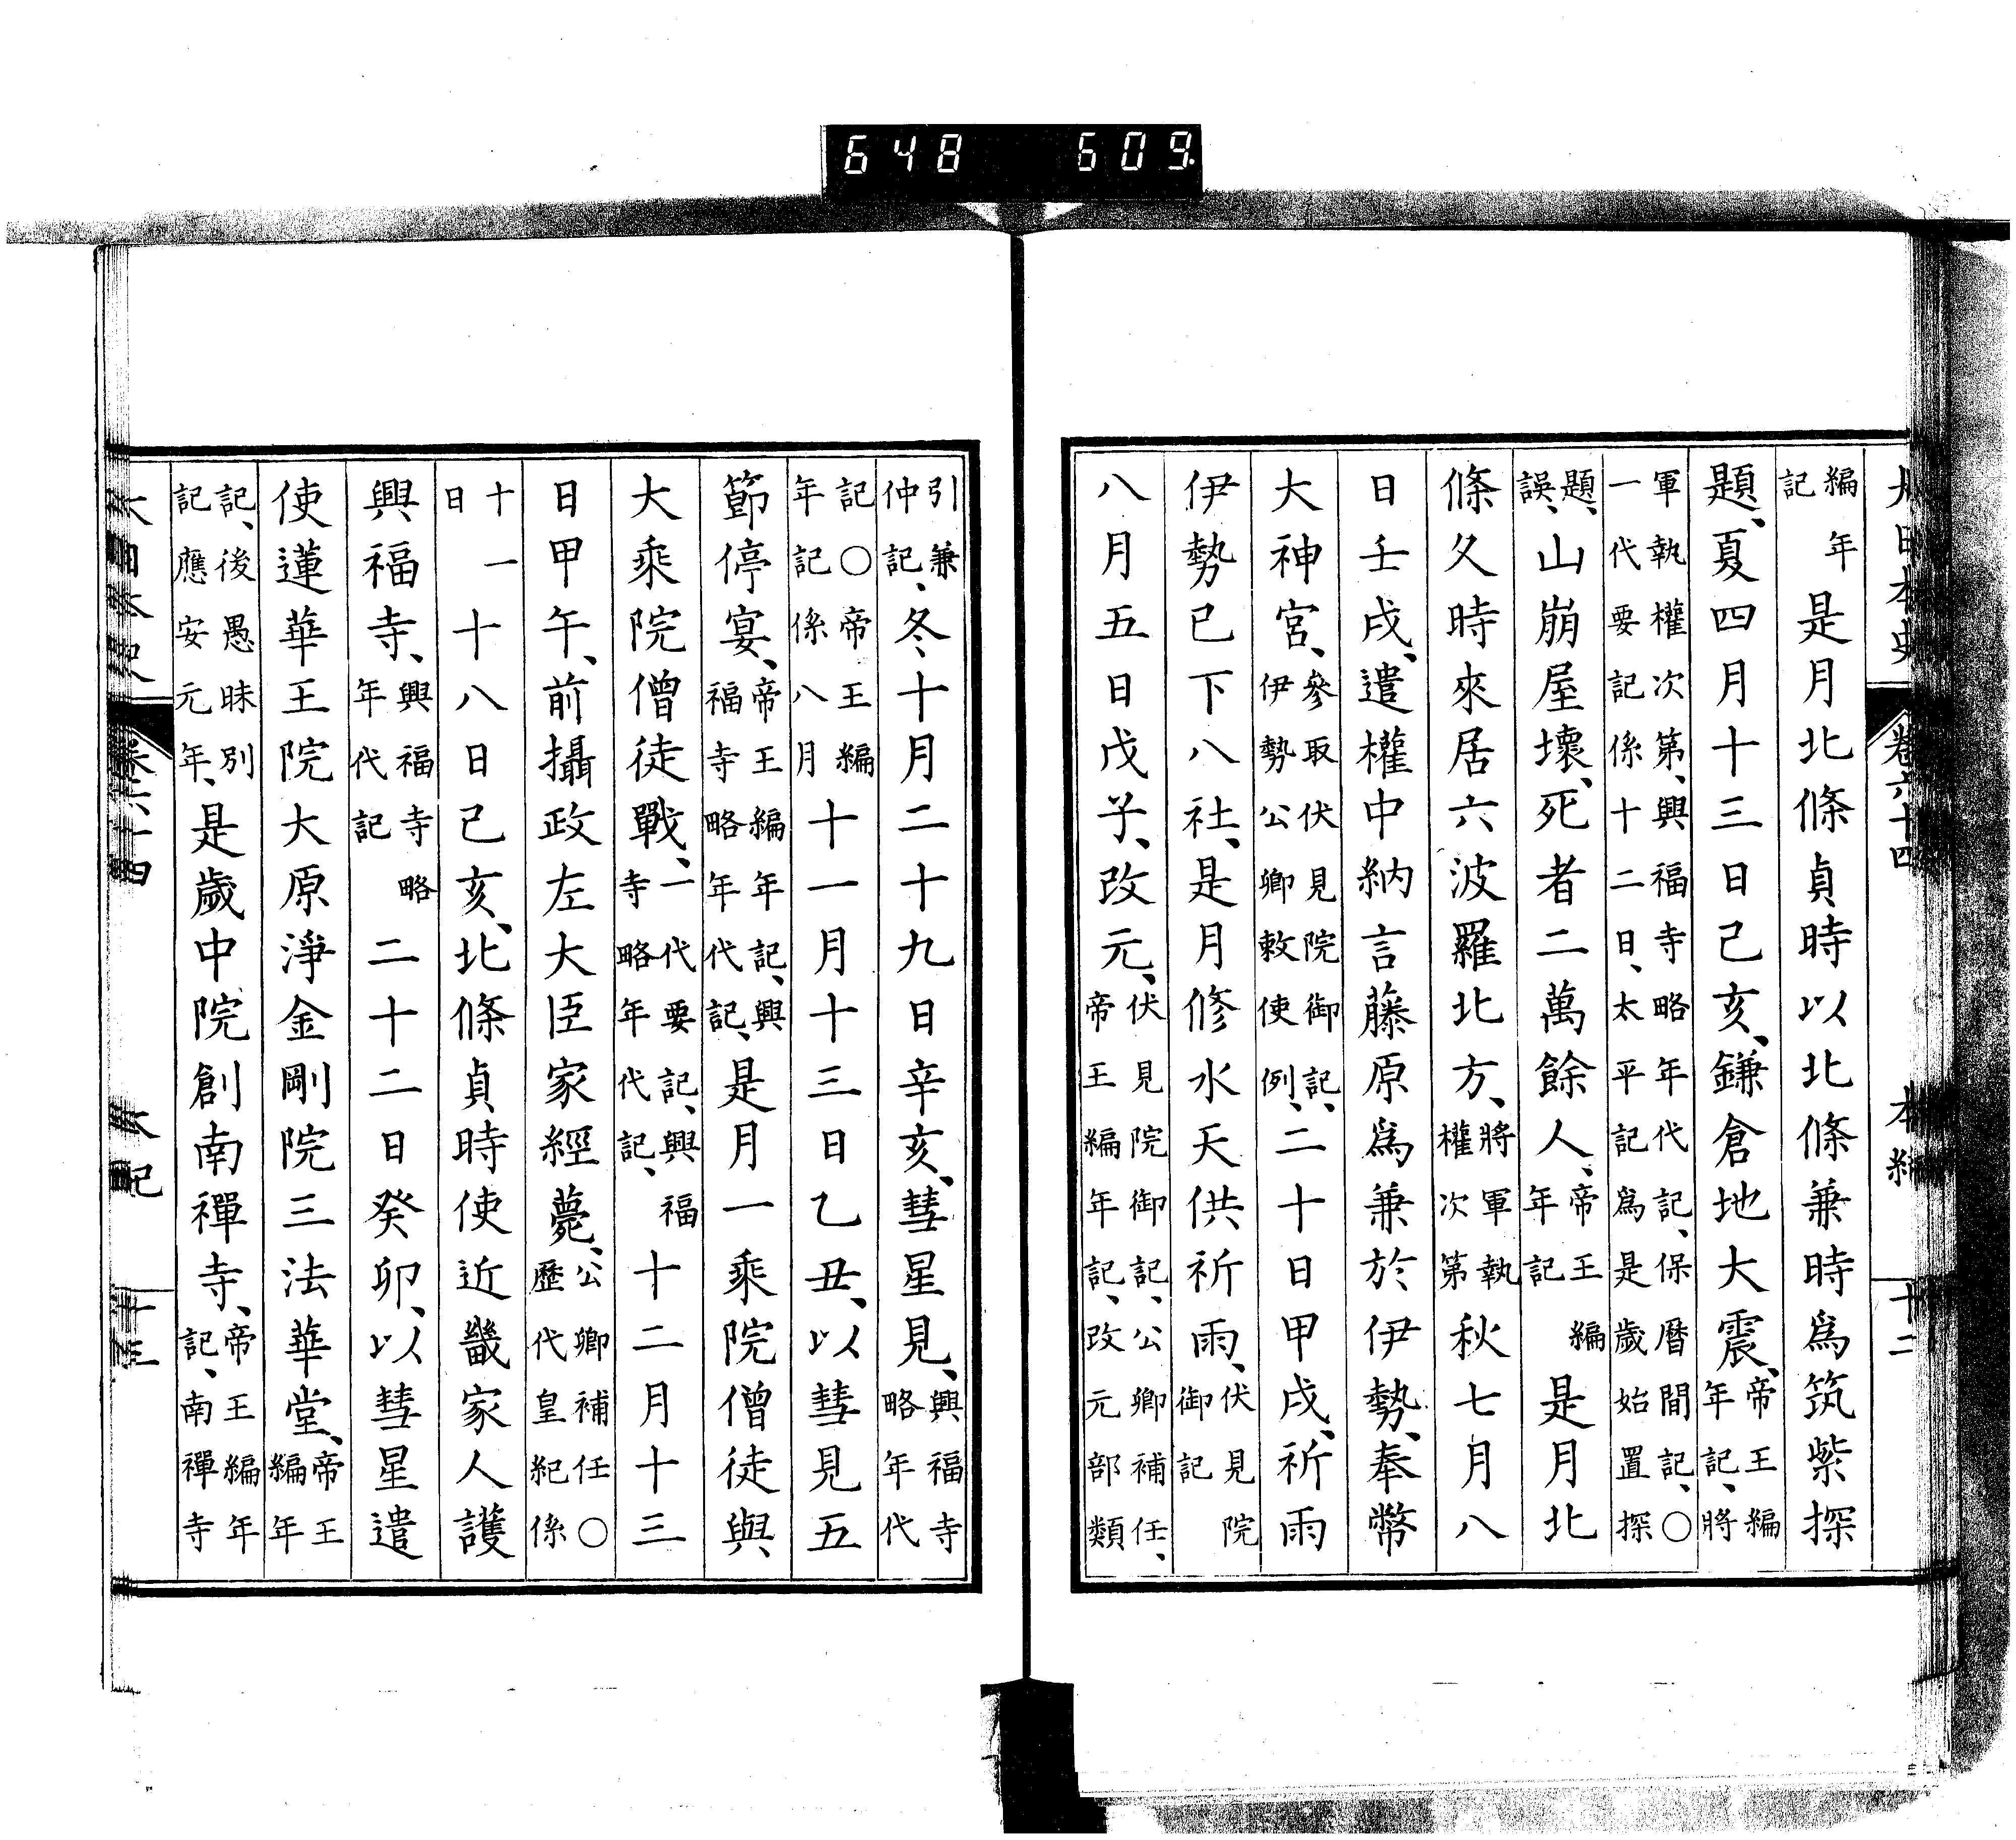 648 609
大日本史 卷六十四 本紀 十二
編年記 是月北條貞時以北條兼時爲筑紫探
題、夏四月十三日己亥、鎌倉地大震、帝王編年記、將
軍執權次第、興福寺略年代記、保曆間記、〇一代要記係十二日、太平記爲是歲始置探
題、誤、山崩屋壞、死者二萬餘人、帝王編年記 是月北
條久時來居六波羅北方、將軍執權次第 秋七月八
日壬戌、遣權中納言藤原爲兼於伊勢、奉幣
大神宮、參取伏見院御記、伊勢公卿敕使例、二十日甲戌、祈雨
伊勢已下八社、是月修水天供祈雨、伏見院御記
八月五日戊子、改元、伏見院御記、公卿補任、帝王編年記、改元部類
引兼仲記、冬十月二十九日辛亥、彗星見、興福寺略年代
記〇帝王編年記係八月 十一月十三日乙丑、以彗見五
節停宴、帝王編年記、興福寺略年代記、是月一乘院僧徒與
大乘院僧徒戰、一代要記、興福寺略年代記、十二月十三
日甲午、前攝政左大臣家經薨、公卿補任〇歷代皇紀係
十一日 十八日己亥、北條貞時使近畿家人護
興福寺、興福寺略年代記 二十二日癸卯、以彗星遣
使蓮華王院大原淨金剛院三法華堂、帝王編年
記、後愚昧別記應安元年、是歲中院創南禪寺、帝王編年記、南禪寺